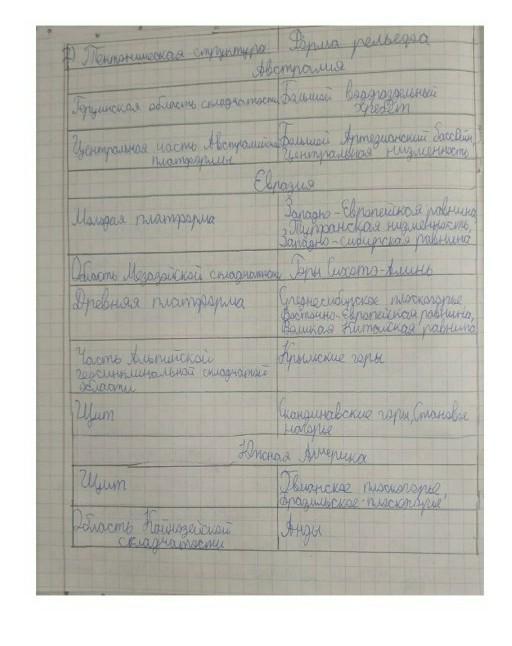 2) Тектоническая структура Форма рельефа
Австралия
Герцинская область складчатости Большой Водораздельный
хребет
Центральная часть Австралийской Большой Артезианский бассейн,
платформы Центральная низменность
Евразия
Молодая платформа Западно-Европейская равнина
Туранская низменность,
Западно-Сибирская равнина
Область Мезазойской складчатости Горы Сихотэ-Алинь
Древняя платформа Среднесибирское плоскогорье,
Восточно-Европейская равнина,
Великая Китайская равнина
Часть Альпийской Крымские горы
геосинклинальной складчатой
области
Щит Скандинавские горы, Становое
нагорье
Южная Америка
Щит Гвианское плоскогорье,
Бразильское плоскогорье
Область Кайнозейской Анды
складчатости